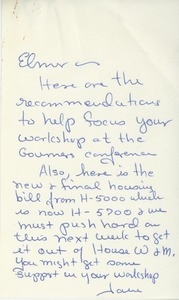 Elmer —
Here are the
recommendations
to help focus your
workshop at the
Governors conference
Also, here is the
new & final housing
bill from H-5000 which
is now H-5700 & we
must push hard on
this next week to get
it out of House W & M.
You might get some
support in your workshop
Jane